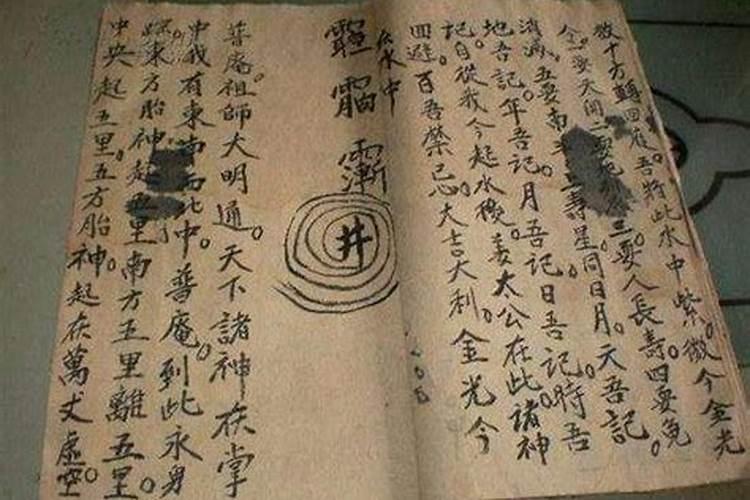 敕十方轉回。吾將此水中紫微。今金光
金。要天開二要地三要人長壽。四要免
消滅。五要南斗星壽星。同日月。天吾記
地吾記。年吾記。月吾記日吾記。時吾
記。自從我今起水後。姜太公在此諸神
回避。百吾禁忌。大吉大利。金光今
水中
井
普庵祖師大明通。天下諸神在掌
中。我有東南西北中。普庵到此永身
東方胎神起五里南方五里離五里。
中央起五里。五方胎神。起在萬丈虛空。